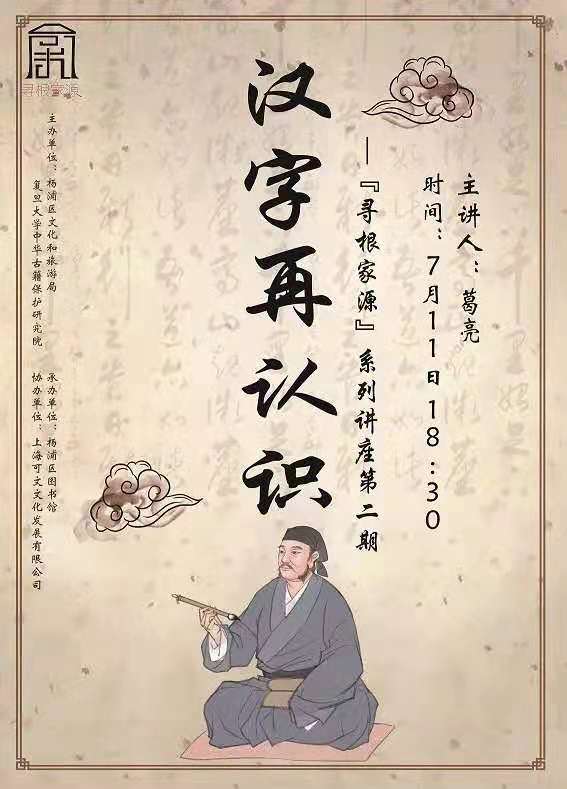 寻根家源
汉字再认识
—『寻根家源』系列讲座第二期
主讲人：葛亮
时间：7月11日18:30
主办单位：杨浦区文化和旅游局
复旦大学中华古籍保护研究院
承办单位：杨浦区图书馆
协办单位：上海可文文化发展有限公司